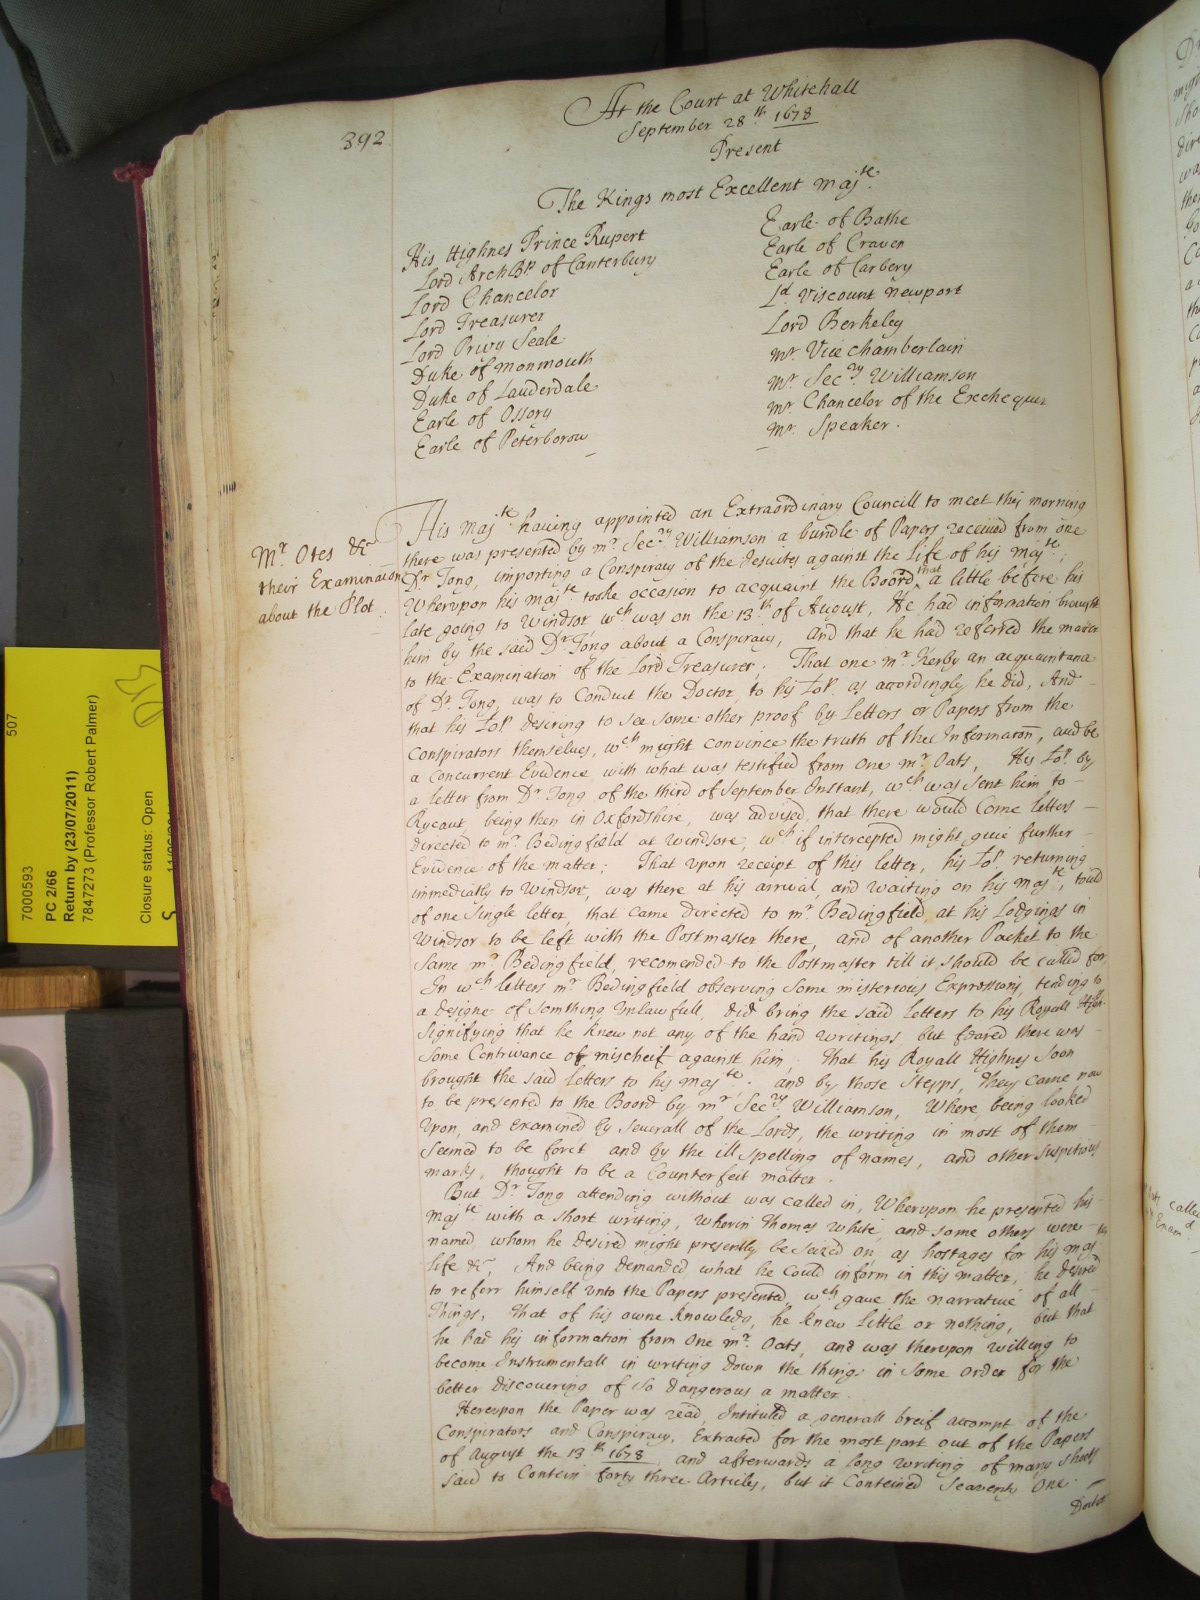 392
At the Court at Whitehall
September 28th 1678
Present
The Kings most Excellent Majte.
His Highnes Prince Rupert
Lord ArchBp of Canterbury
Lord Chancelor
Lord Treasurer
Lord Privy Seale
Duke of Monmouth
Duke of Lauderdale
Earle of Ossory
Earle of Peterborow
Earle of Bathe
Earle of Craven
Earle of Carbery
Ld Viscount Newport
Lord Berkeley
Mr. Vice Chamberlain
Mr. Secry Williamson
Mr. Chancelor of the Exchequer
Mr. Speaker.
Mr. Otes &c
their Examinacon
about the Plot
His Majte having appointed an Extraordinary Councill to meet this morning
there was presented by Mr. Secry Williamson a bundle of Papers received from one
Dr Tong, importing a Conspiracy of the Jesuites against the Life of his Majte;
Wherupon his Majte tooke occasion to acquaint the Board, that a little before his
late going to Windsor wch was on the 13th of August, He had information brought
him by the said Dr Tong about a Conspiracy, and that he had referred the matter
to the Examination of the Lord Treasurer. That one Mr. Kerby an acquaintance
of Dr. Tong, was to Conduct the Doctor to his Lop. as accordingly he did, And
that his Lop. desiring to see some other proof by Letters or Papers from the
Conspirators themselves, wch might convince the truth of the Informacon, and be
a Concurrent Evidence with what was testified from one Mr. Oats, His Lop. by
a letter from Dr Tong of the third of September Instant, wch was sent him to
Rycaut, being then in Oxfordshire, was advised, that there would Come letters
directed to Mr. Bedingfield at Windsore, wch if intercepted might give further
Evidence of the matter: That upon receipt of this letter, his Lop. returning
immediatly to Windsor, was there at his arrival, and waiting on his Majte, tould
of one single letter, that came directed to Mr. Bedingfield, at his Lodgings in
Windsor to be left with the Postmaster there, and of another Packet to the
same Mr. Bedingfield, recomended to the Postmaster till it should be called for
In wch letters Mr. Bedingfield observing some misterious Expressions, tending to
a designe of somthing Unlawfull, did bring the said letters to his Royall High:
signifying that he knew not any of the hand writings, but feared there was
some Contrivance of mischeif against him; That his Royall Highnes soon
brought the said letters to his Majte. and by those Stepps, they came now
to be presented to the Board by Mr Secry Williamson, Where being looked
Upon, and Examined by severall of the Lords, the writing in most of them
seemed to be forct and by the ill spelling of names, and other suspitious
marks, thought to be a Counterfeit matter.
But Dr. Tong attending without was called in, Wherupon he presented his
Majte with a short writing, wherin Thomas White, and some others were
named whom he desired might presently be seized on, as hostages for his Majte
life &c, And being demanded what he could inform in this matter, he desired
to referr himself unto the Papers presented wch gave the narrative of all
Things, That of his owne Knowledg, he knew Little or nothing, but that
he had his information from one Mr. Oats, and was therupon willing to
become Instrumentall in writing down the things in some order for the
better discovering of so dangerous a matter.
Hereupon the Paper was read, Intituled a generall breif accompt of the
Conspirators and Conspiracy, Extracted for the most part out of the Papers
of August the 13th 1678 and afterwards a long writing of many sheets
said to Contein forty three Articles, but it Conteined Seaventy One
507
7000593
PC 2/66
Return by (23/07/2011)
7847273 (Professor Robert Palmer)
Closure status: Open